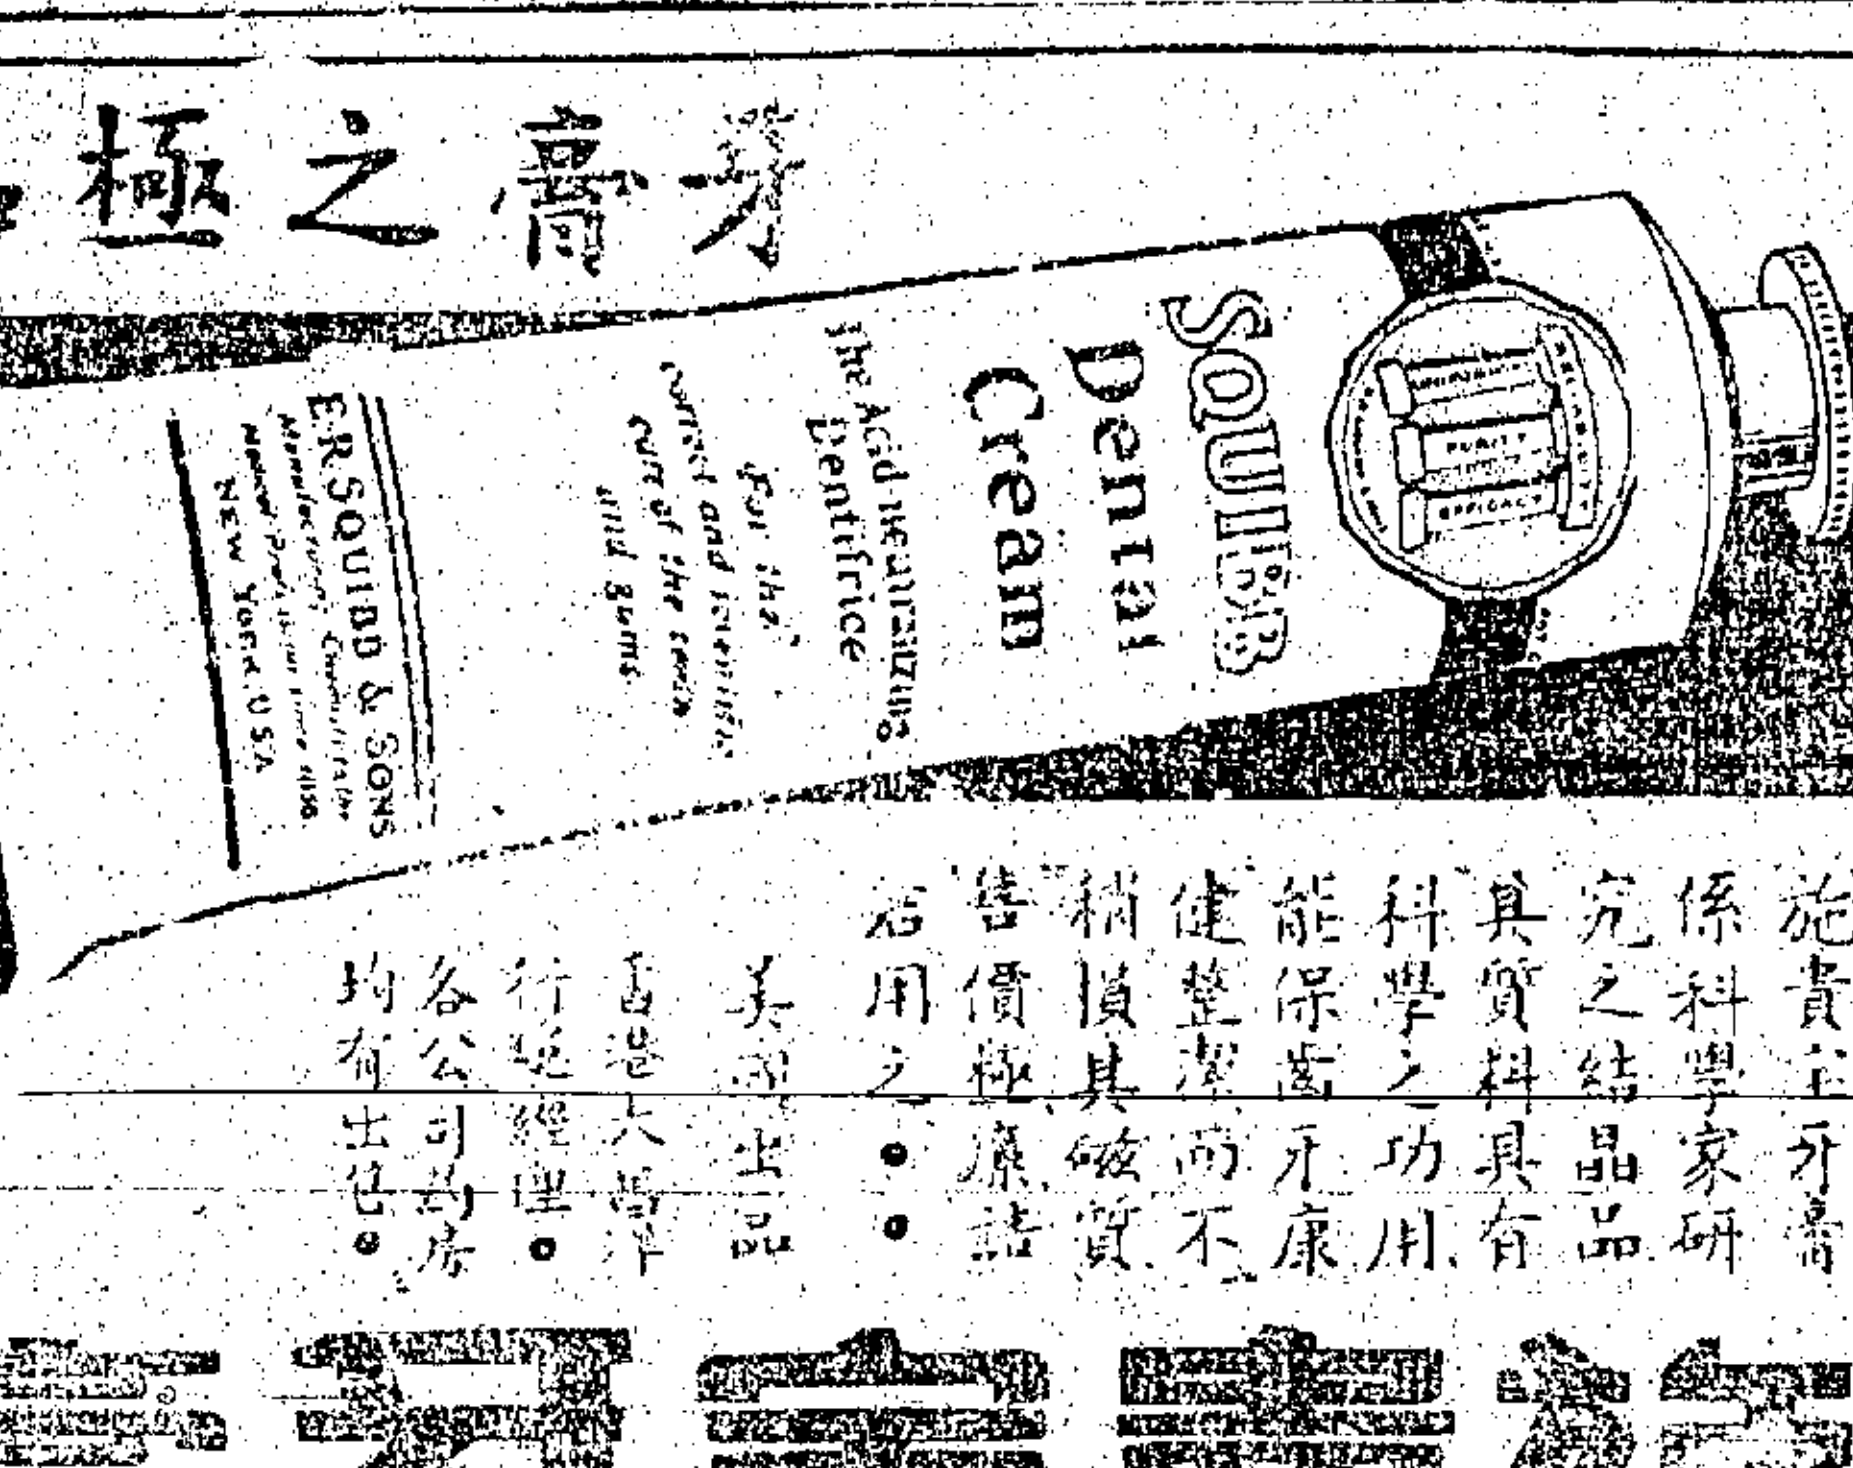 牙膏之極
SQUIBB
Dental
Cream
The Acid neutralizing
Dentifrice
For the
correct and scientific
care of the teeth
and gums
E·R·SQUIBB & SONS
Manufacturing Chemists to the
NEW YORK, U.S.A
RELIABILITY
PURITY
EFFICACY
施貴主牙膏
係科學家研
究之結晶品
其質料具有
科學之功用
能保齒牙康
健整潔而不
稍損其磁質
售價極廉請
君用之。。
美國出品
香港大昌洋
行總經理。
各公司葯房
均有出售。